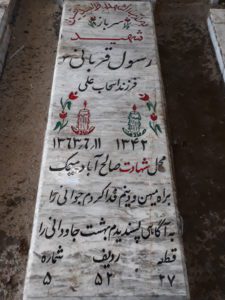 سرباز
شهید
رسول قربانی
فرزند اسحاب علی
۱۳۴۲ ۱۳۶۳/۶/۱۱
محل شهادت صالح آباد
براه میهن و دینم فدا کردم جوانی را
به آگاهی پسندیدم بهشت جاودانی را
قطعه ردیف شماره
۲۷ ۵۲ ۵